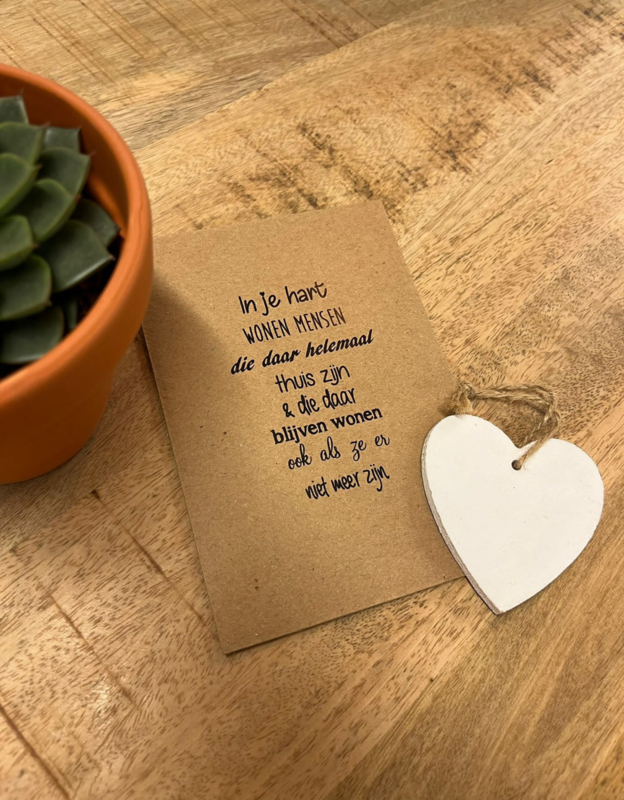 In je hart
WONEN MENSEN
die daar helemaal
thuis zijn
& die daar
blijven wonen
ook als ze er
niet meer zijn